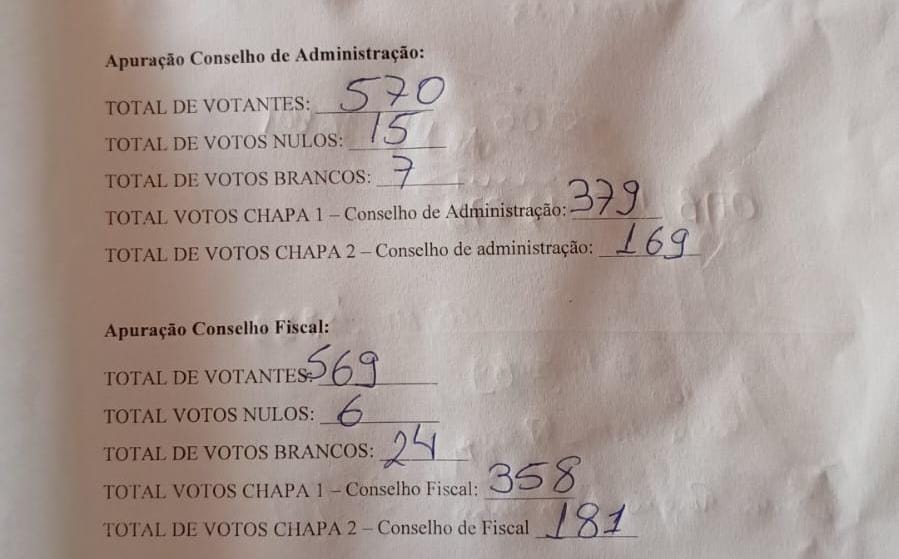 Apuração Conselho de Administração:
TOTAL DE VOTANTES: 570
TOTAL DE VOTOS NULOS: 15
TOTAL DE VOTOS BRANCOS: 7
TOTAL VOTOS CHAPA 1 – Conselho de Administração: 379
TOTAL DE VOTOS CHAPA 2 – Conselho de administração: 169
Apuração Conselho Fiscal:
TOTAL DE VOTANTES: 569
TOTAL VOTOS NULOS: 6
TOTAL DE VOTOS BRANCOS: 24
TOTAL VOTOS CHAPA 1 – Conselho Fiscal: 358
TOTAL DE VOTOS CHAPA 2 – Conselho de Fiscal 181